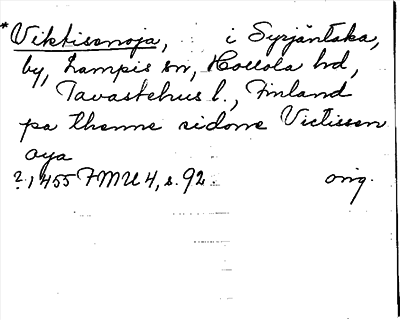 *Viktisenoja, i Syrjäntaka,
by, Lampis sn, Hollola hd,
Tavastehus l., Finland
pa thenne sidone Victissen
oya
?.1455 FMU 4, s. 92 orig.